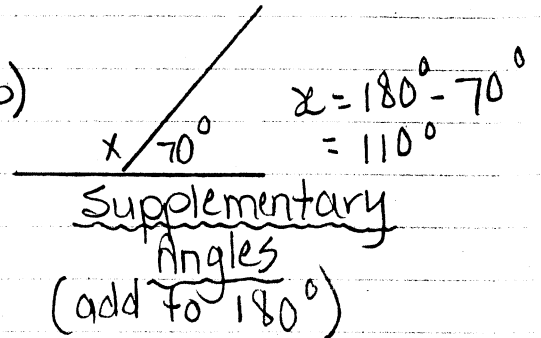 b)
x = 180° - 70°
= 110°
x 70°
Supplementary
Angles
(add to 180°)